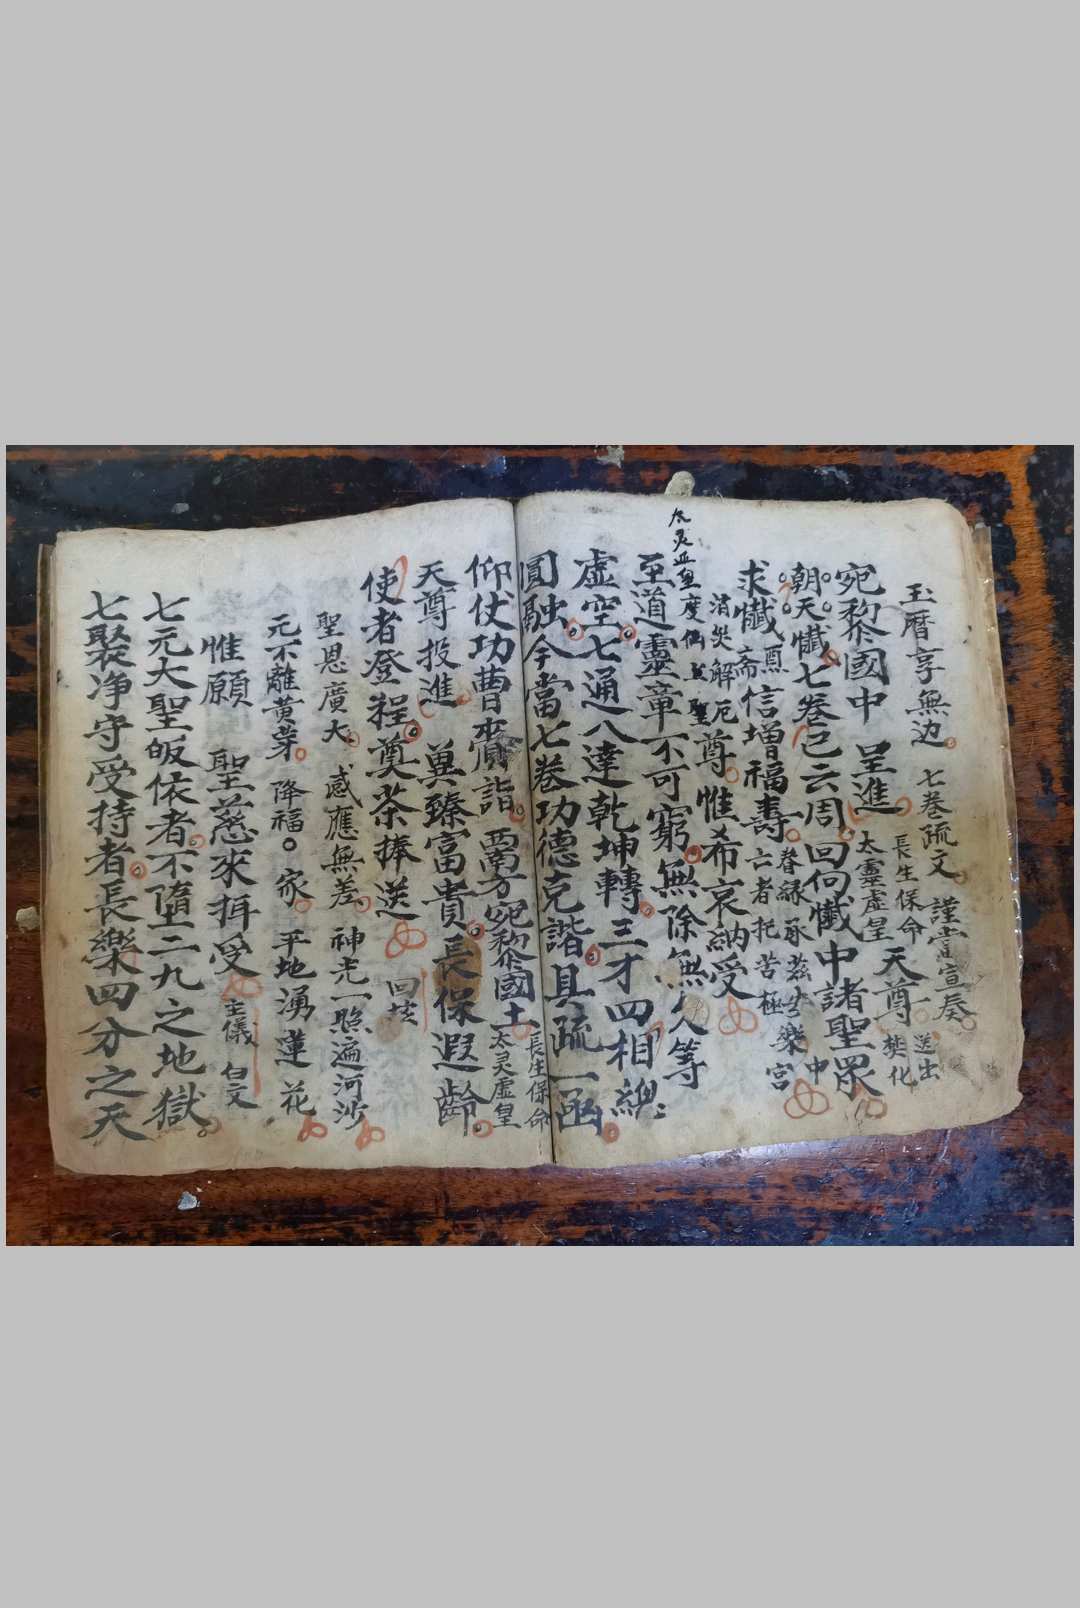 玉曆享無边 七卷疏文 謹當宣奏
宛黎國中 呈進 長生保命 太靈虛皇 天尊 送出 焚化
朝天懺七卷已云周回向懺中諸聖眾
求懺 斋 信增福壽 眷緣承兹 亡者托苦極樂宮 中
消災解厄 聖尊惟希哀納受
至道靈章不可窮無除無欠等
虛空七通八達乾坤轉三才四相總
圓融今當七卷功德克諧具疏一函
仰仗功曹來賫詣 西方宛黎國土 長生保命 太灵虛皇
天尊 投進 冀臻富貴長保遐齡
使者登程奠茶捧送 回
聖恩廣大 感應無差 神光一照遍河沙
元不離黃芽 降福 家 平地湧蓮花
惟願 聖慈來拜受 主儀 白文
七元大聖皈依者不墮二九之地獄
七聚净守受持者長樂四分之天